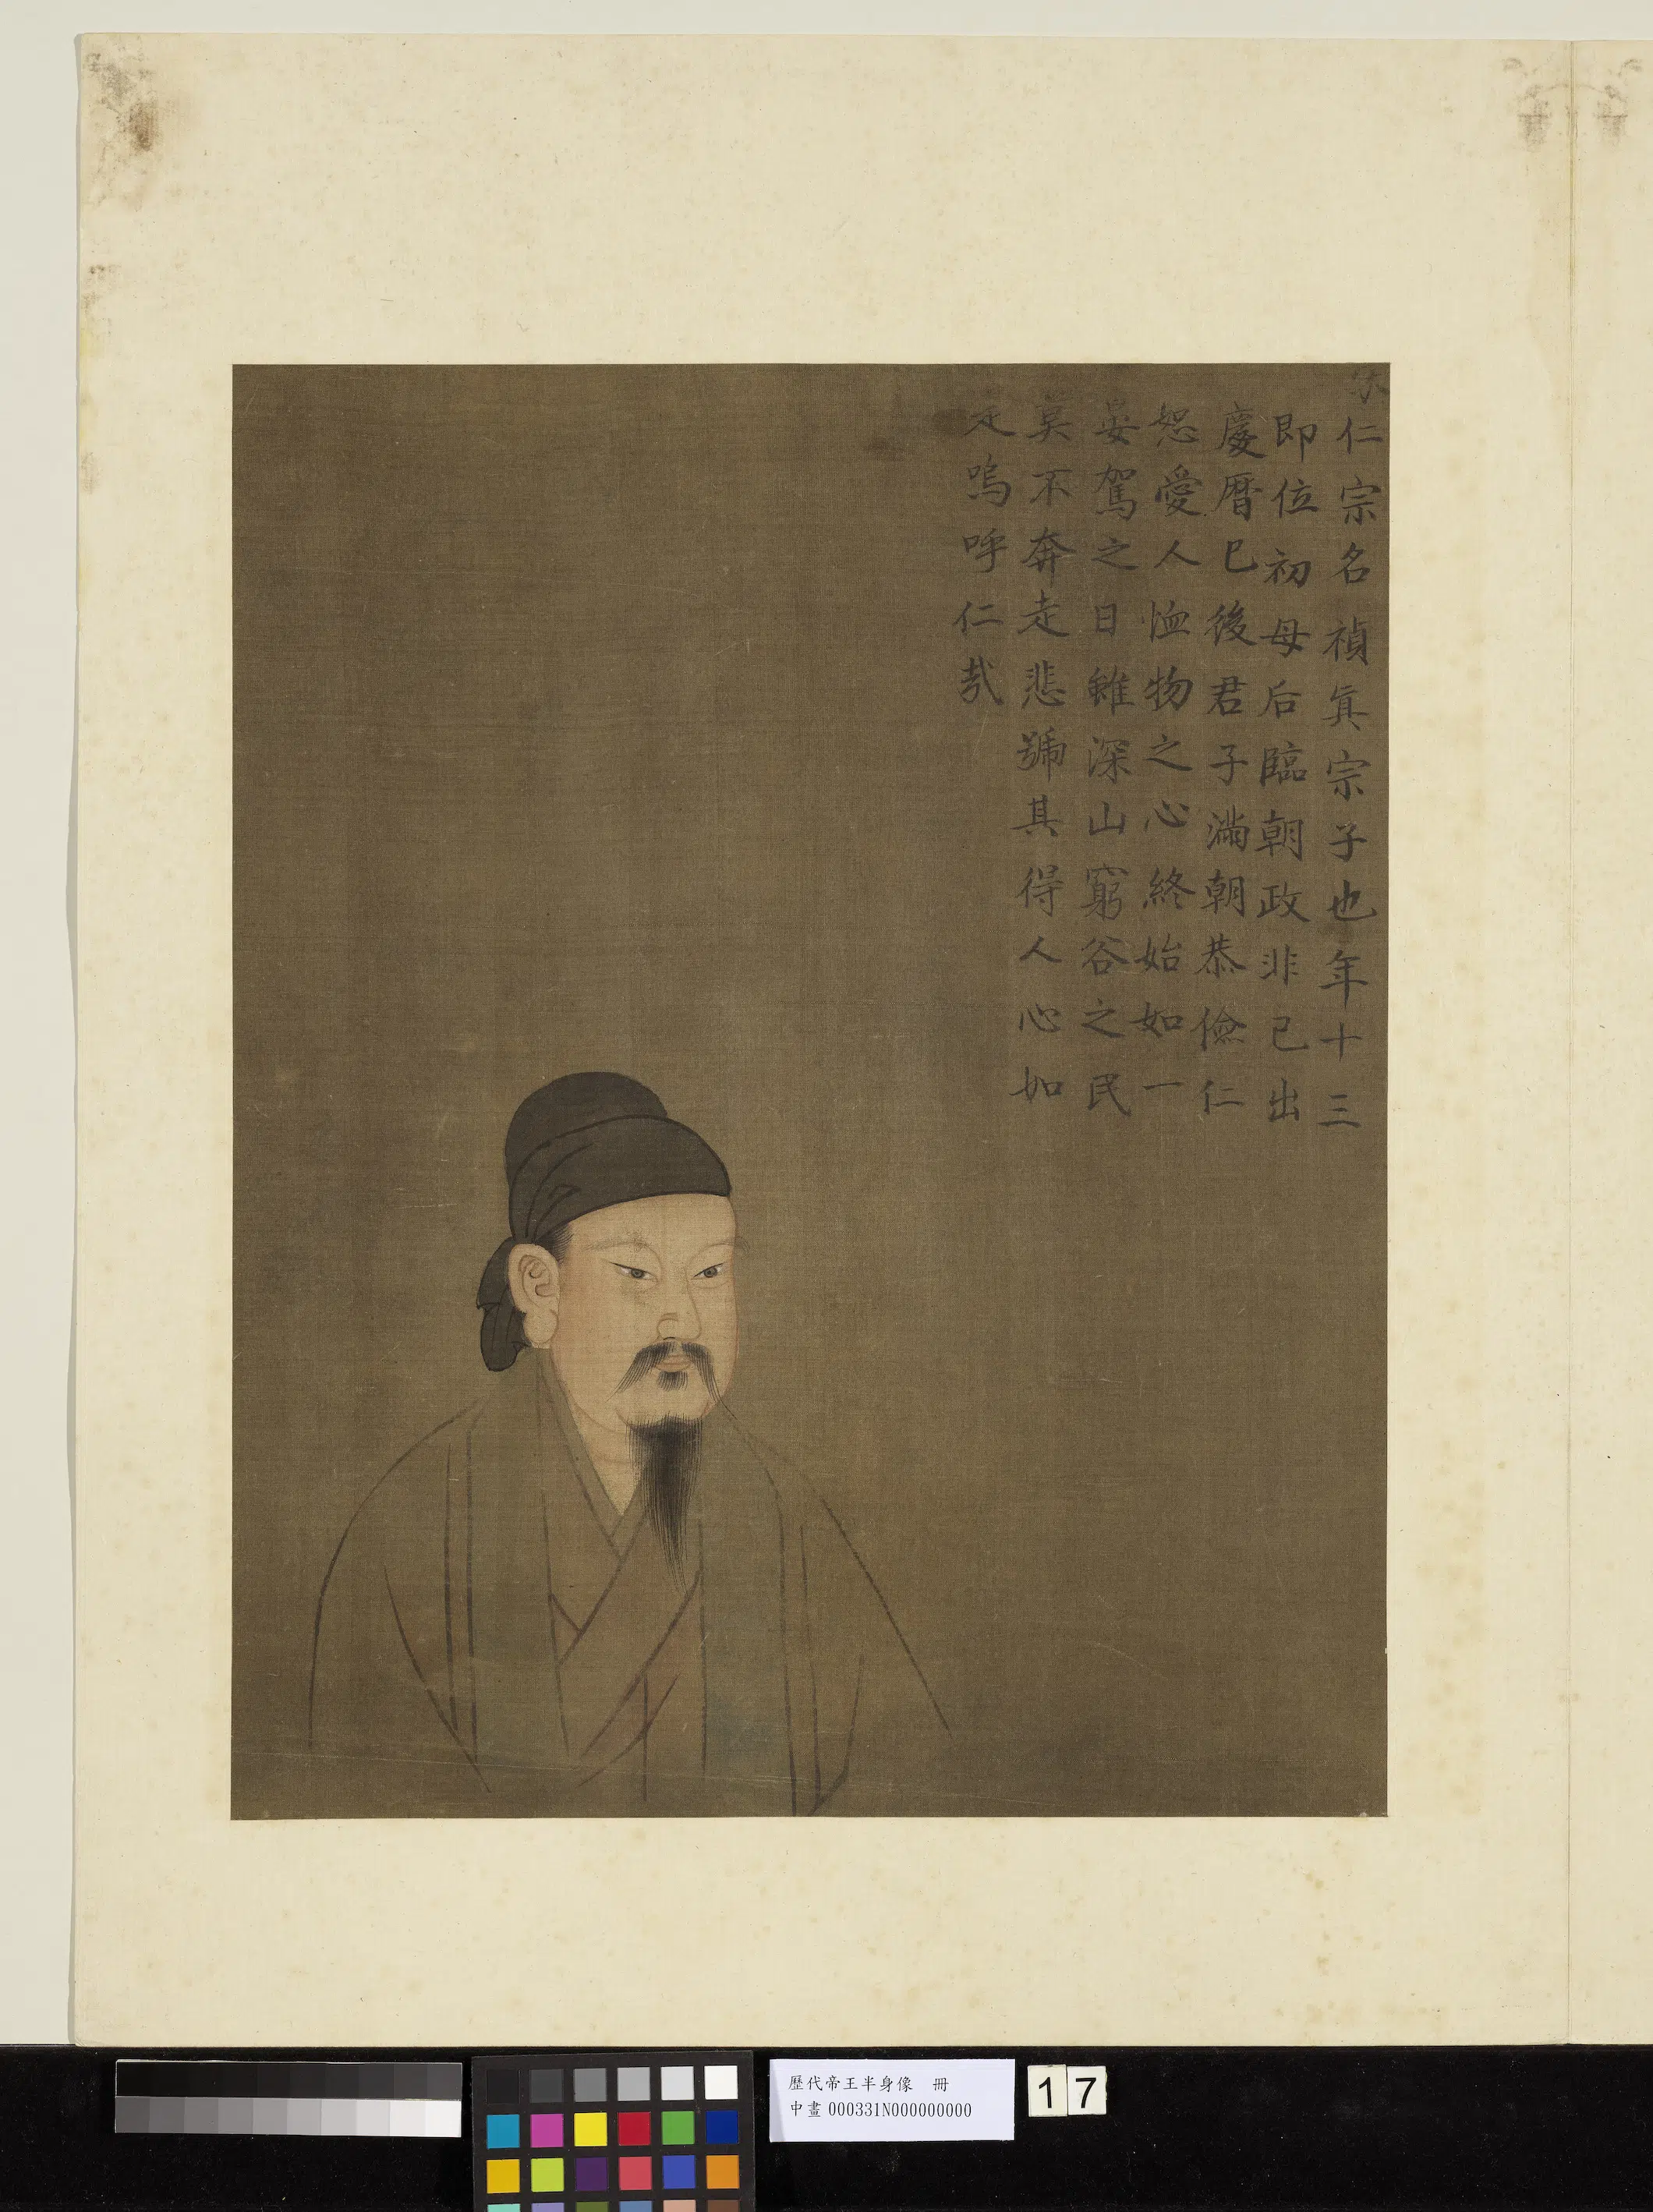 仁宗名禎眞宗子也年十三
即位初母后臨朝政非己出
慶曆已後君子滿朝恭儉仁
恕愛人恤物之心終始如一
晏駕之日雖深山窮谷之民
莫不奔走悲號其得人心如
是嗚呼仁哉
歷代帝王半身像 冊
中畫 000331N000000000
17